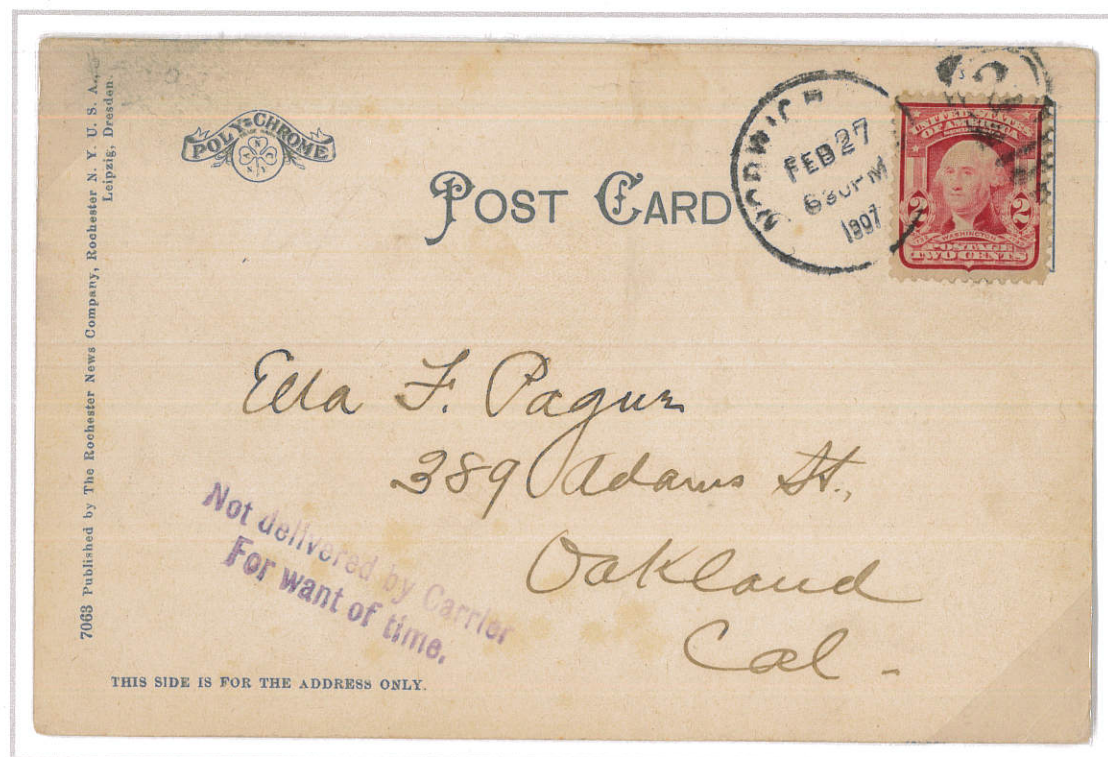 7063 Published by The Rochester News Company, Rochester N. Y. U. S. A.,
Leipzig, Dresden.
POLY-CHROME
POST CARD
NORWICH
FEB 27
630 PM
1907
UNITED STATES
OF AMERICA
2 2
WASHINGTON
POSTAGE
TWO CENTS
Ella F.
389 Adams St.,
Oakland
Cal.
Not delivered by Carrier
For want of time.
THIS SIDE IS FOR THE ADDRESS ONLY.